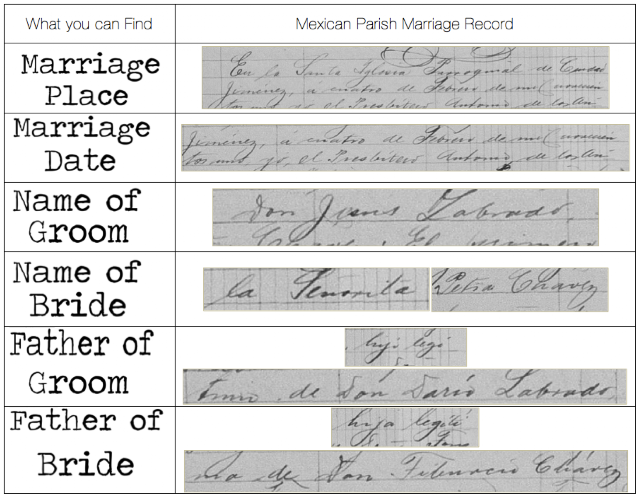 What you can Find
Mexican Parish Marriage Record
Marriage
Place
En la Santa Iglesia Parroquial de Ciudad
Jiménez, a cuatro de Febrero de mil novecien
tos uno yo, el Presbítero Antonio de los
Marriage
Date
Jiménez, á cuatro de Febrero de mil novecien
tos uno yo, el Presbítero Antonio de los
Name of
Groom
Don Jesus Labrado,
Name of
Bride
la Señorita
Petra Chávez
Father of
Groom
hijo legí
timo de Don Darío Labrado
Father of
Bride
hija legíti
ma de Don Tiburcio Chávez